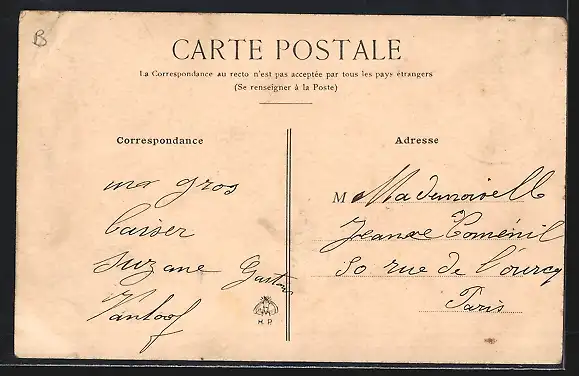 B
CARTE POSTALE
La Correspondance au recto n'est pas acceptée par tous les pays étrangers
(Se renseigner à la Poste)
Correspondance
gros
baiser
suzane Gaston
Adresse
M Mademoiselle
Jeanne Coménil
50 rue de l'ourcq
Paris
H. P.